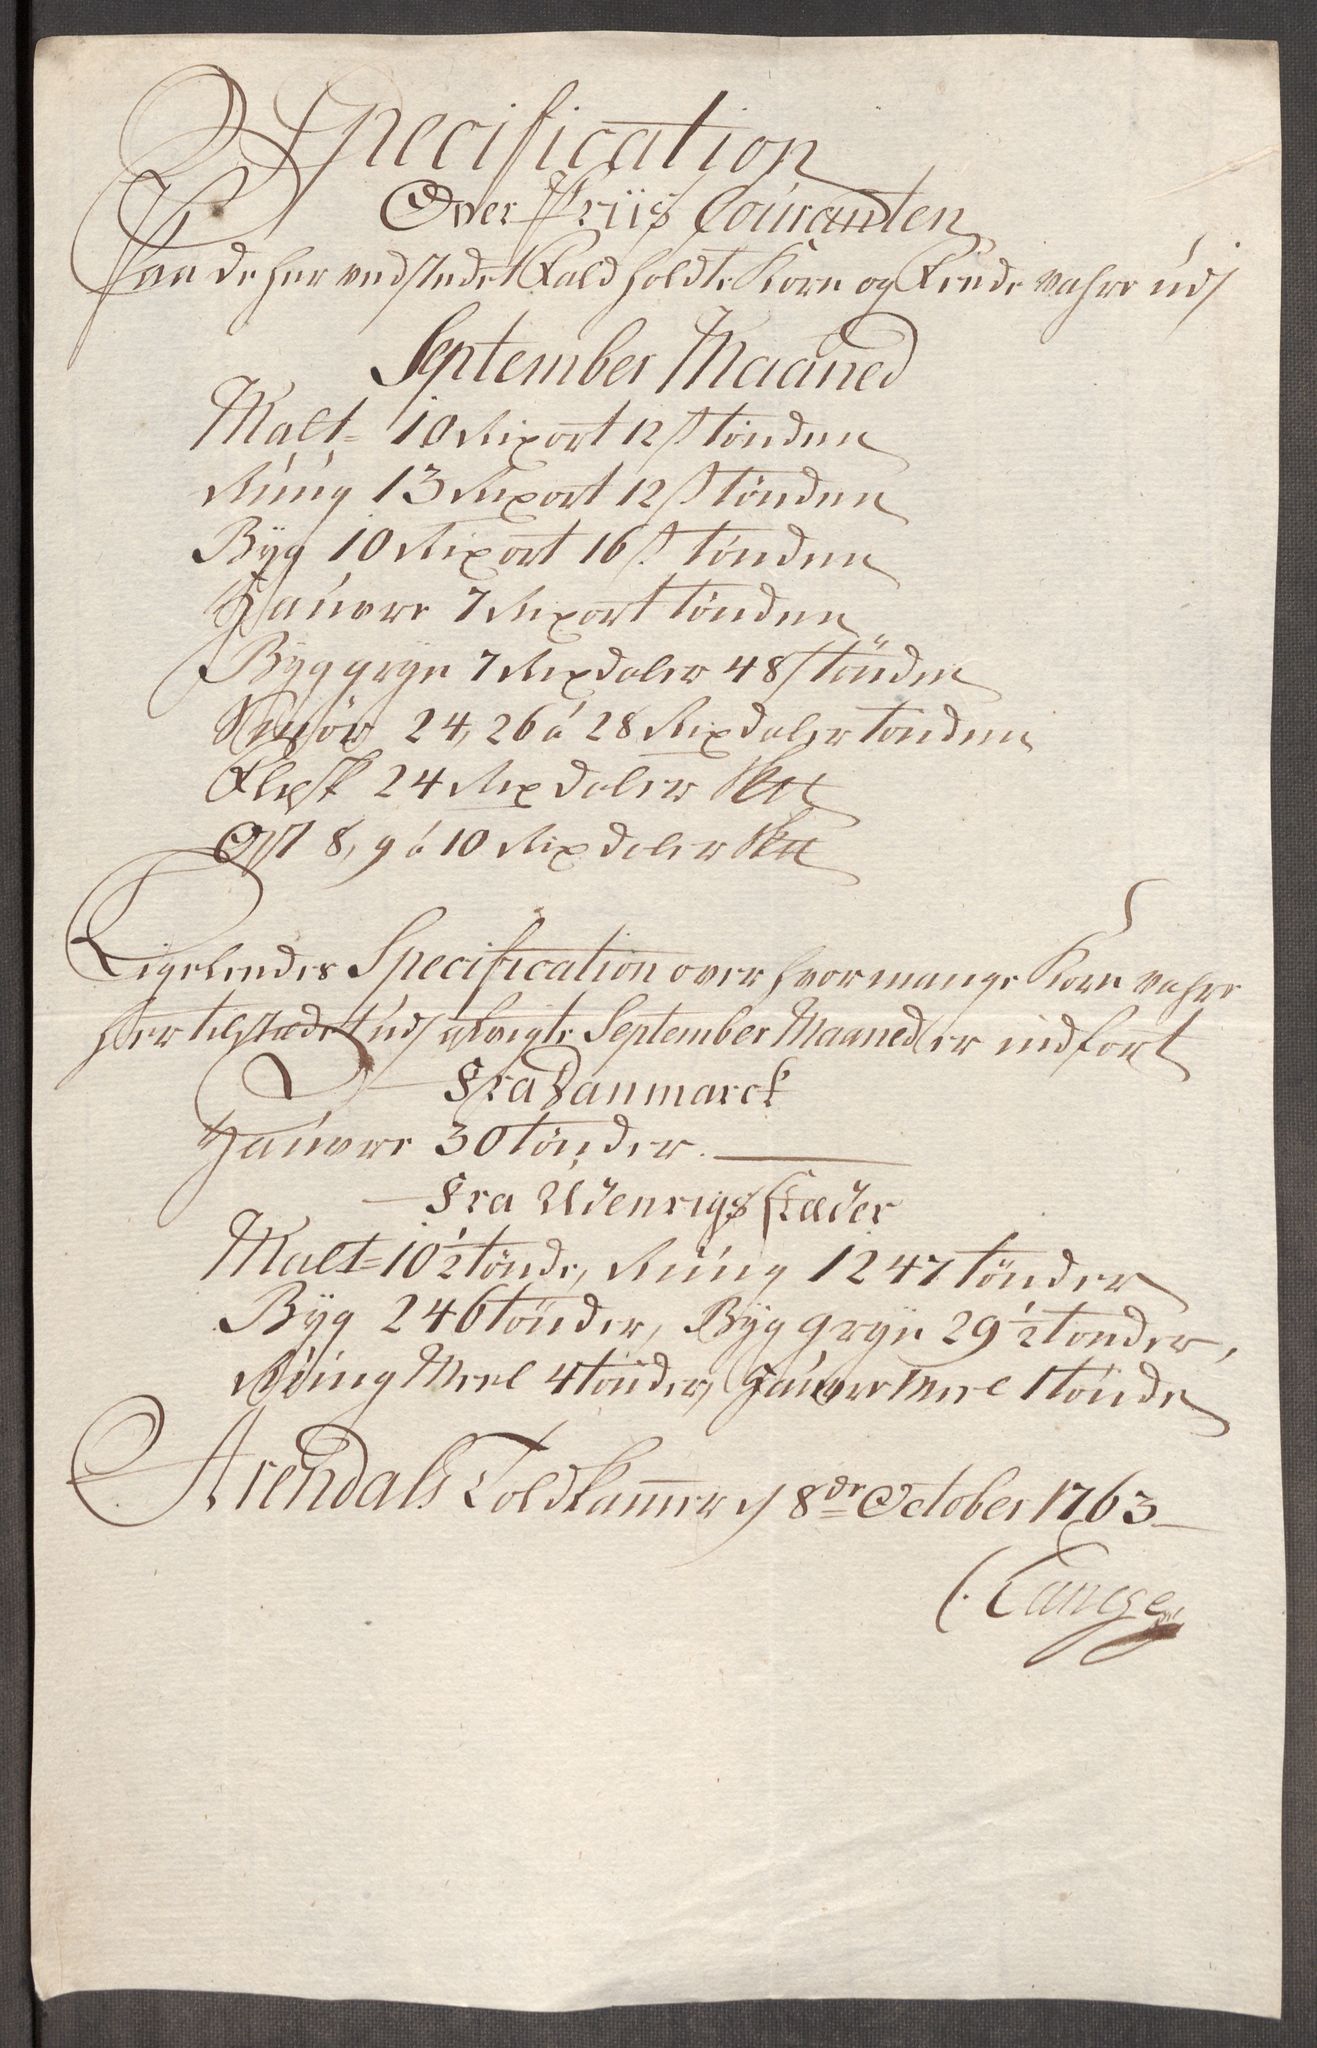 Specification
Over Priis Couranten
Paa de her ved stedet Fald holdte Korn og Fende vahre udj
September Maaned
Malt= 10 Rixort 12 s tönden
Rúúg 13 Rixort 12 s tönden
Byg 10 Rixort 16 s. tönden
Haúvre 7 Rixort tönden
Byggryn 7 Rixdaler 48 s tönden
Smör 24, 26 á 28 Rixdaler tönden
Flesk 24 Rixdaler
Ost 8, 9 á 10 Rixdaler
Ligeleedes Specification over hvor mange Korn vahre
her til stædet udj afvigte September Maaned er indfört
Fra Danmarck
Haúvre 30 tönder.
Fra Udenrigs stæder
Malt= 10 1/2 tönde, Rúúg 1247 tönder
Byg 246 tönder, Byg gryn 29 1/2 tönder,
Rúúg Meel 4 tönder, Haúvre Meel 1 tönde
Arendals Toldkammer d 8de October 1763
C. Lange